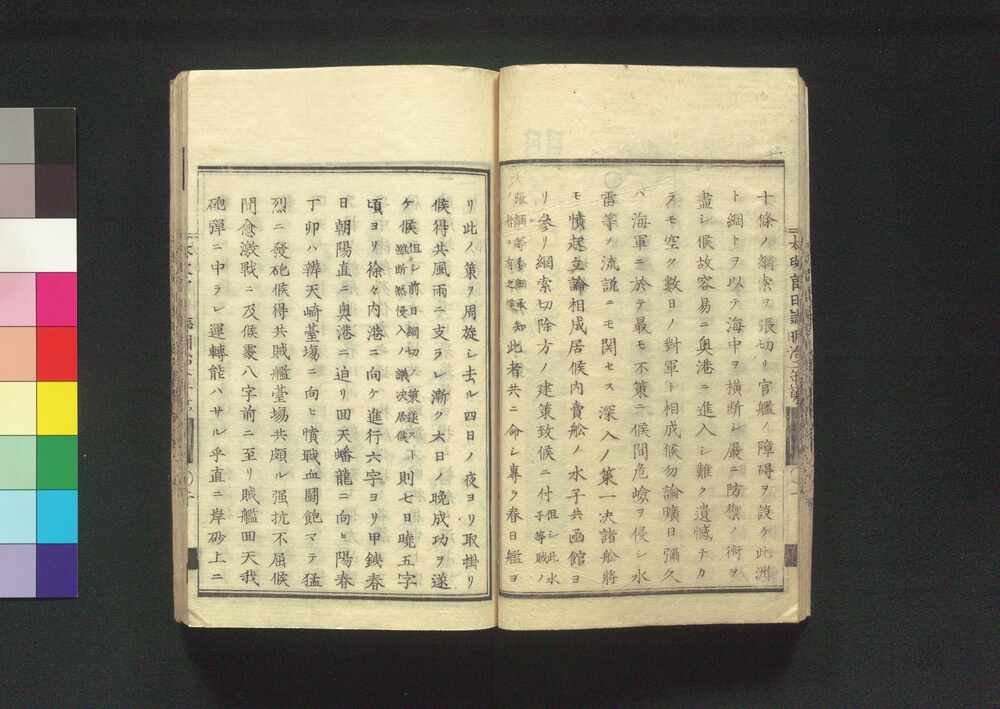 十條ノ綱索ヲ張切リ官艦ノ障碍ヲ設ケ此洲
ト綱トヲ以テ海中ヲ横断シ嚴ニ防禦ノ術ヲ
盡シ候故容易ニ奥港ニ進入シ難ク遺憾ナカ
ラモ空ク數日ノ對軍ト相成候勿論曠日彌久
ハ海軍ニ於テ最モ不策ニ候間危嶮ヲ侵シ水
雷等ノ流説ニモ関セス深入ノ策一决諸舩將
モ憤起立論相成居候内賣舩ノ水子共函館ヨ
リ參リ綱索切除方ノ建策致候ニ付但シ此水子等賊ノ
張綱等委細承知ノ者ニ有之候此者共ニ命シ專ラ春日艦ヨ
リ此ノ策ヲ周旋シ去ル四日ノ夜ヨリ取掛リ
候得共風雨ニ支ラレ漸ク六日ノ晩成功ヲ遂
ケ候但シ前日綱切ノ策遂ス卜雖断然侵入ノ議决居候則七日曉五字
頃ヨリ徐々内港ニ向ケ進行六字ヨリ甲鉄春
日朝陽直ニ奥港ニ迫リ回天蟠龍ニ向ヒ陽春
丁卯ハ辨天崎䑓塲ニ向ヒ憤戰血闘飽マテ猛
烈ニ發砲候得共賊艦䑓塲共頗ル强抗不屈候
間愈激戰ニ及候處八字前ニ至リ賊艦回天我
砲彈ニ中ラレ運轉能ハサル乎直ニ岸砂上ニ